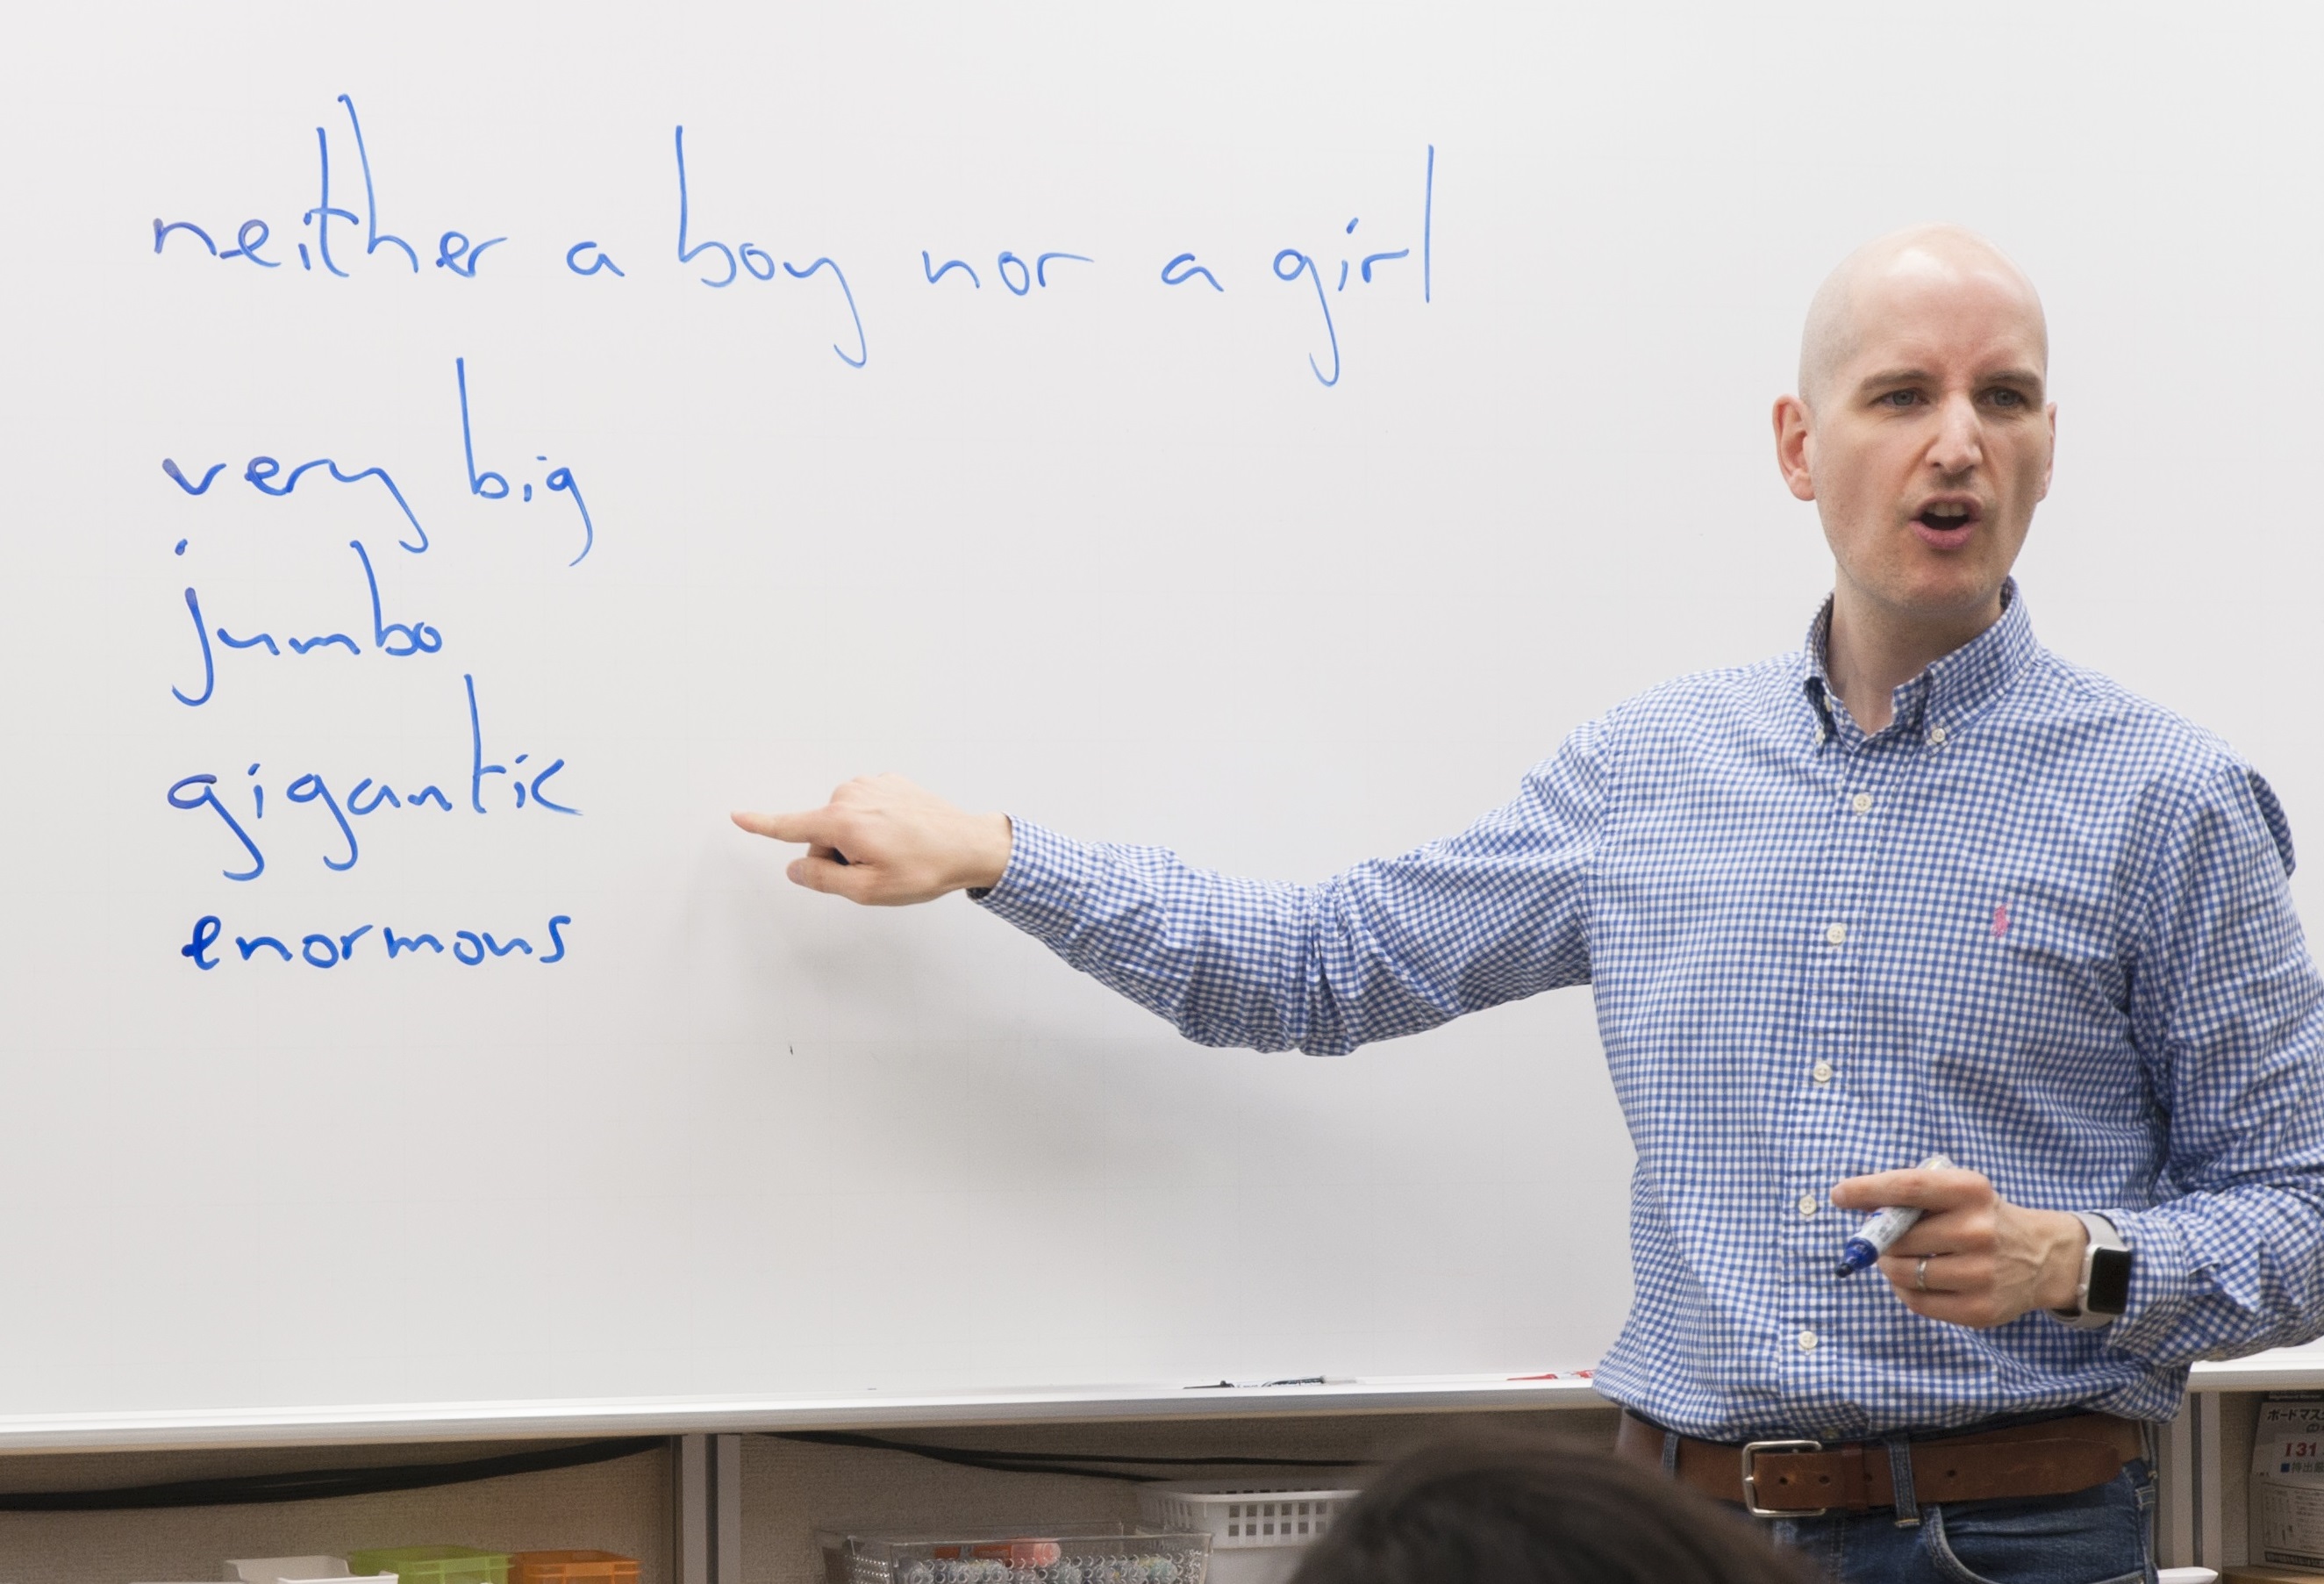 neither a boy nor a girl
very big
jumbo
gigantic
enormous
I31